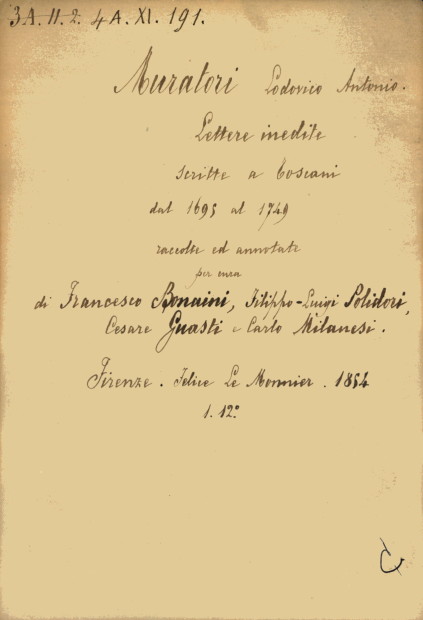 3A.11.2. 4A.XI.191.
Muratori Lodovico Antonio.
Lettere inedite
scritte a Toscani
dal 1695 al 1749
raccolte ed annotate
per cura
di Francesco Bonaini, Filippo-Luigi Polidori,
Cesare Guasti e Carlo Milanesi.
Firenze. Felice Le Monnier. 1854
1. 12º